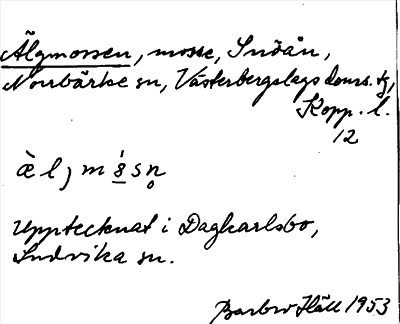 Älgmossen, mosse, Snöån,
Norrbärke sn, Västerbergslags doms. tg,
Kopp. l.
12
Upptecknat i Dagkarlsbo,
Ludvika sn.
Barbro Häll 1953